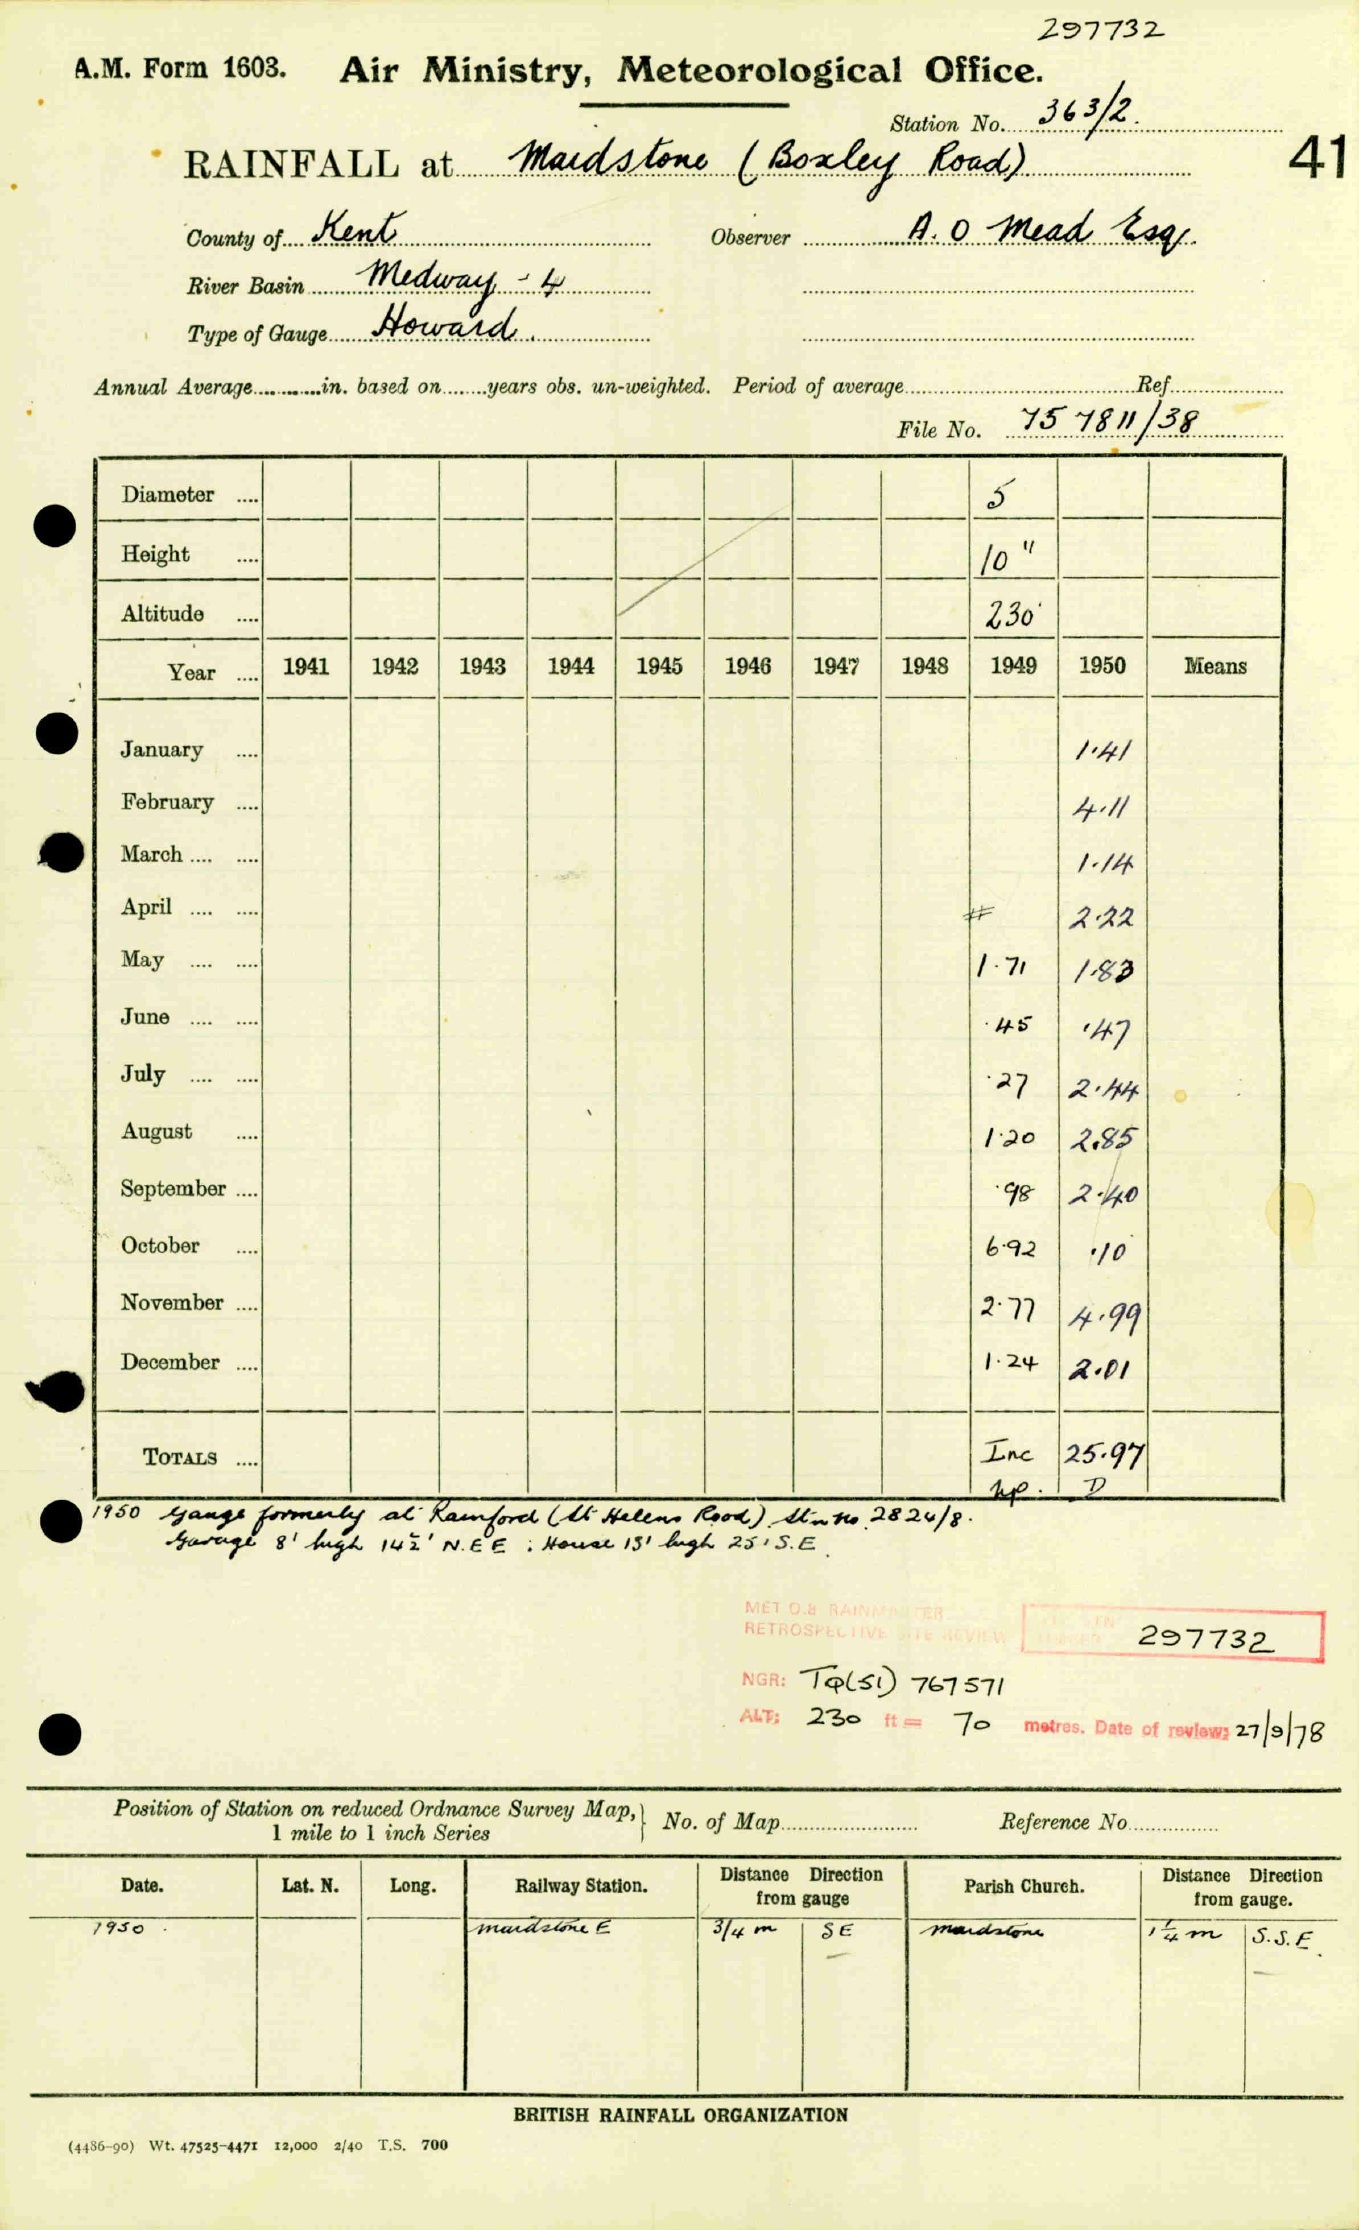 297732
A.M. Form 1603. Air Ministry, Meteorological Office.
Station No. 363/2.
RAINFALL at Maidstone (Boxley Road)
41
County of Kent Observer A. O Mead Esq.
River Basin Medway - 4
Type of Gauge Howard.
Annual Average............in. based on.......years obs. un-weighted. Period of average..........Ref..........
File No. 75 7811/38
Diameter .... 5
Height .... 10"
Altitude .... 230'
Year .... 1941 1942 1943 1944 1945 1946 1947 1948 1949 1950 Means
January .... 1.41
February .... 4.11
March .... .... 1.14
April .... .... # 2.22
May .... .... 1.71 1.83
June .... .... .45 .47
July .... .... .27 2.44
August .... 1.20 2.85
September .... .98 2.40
October .... 6.92 .10
November .... 2.77 4.99
December .... 1.24 2.01
TOTALS .... Inc 25.97
np. D
1950 Gauge formerly at Rainford (St Helens Road) Stn no. 2824/8.
Garage 8' high 14½' N.E E : House 13' high 25' S.E.
MET O.8 RAINMASTER
RETROSPECTIVE SITE REVIEW 297732
NGR: TQ(51) 767571
ALT: 230 ft = 70 metres. Date of review: 27/9/78
Position of Station on reduced Ordnance Survey Map, } No. of Map.......... Reference No..........
1 mile to 1 inch Series
Date. Lat. N. Long. Railway Station. Distance Direction from gauge Parish Church. Distance Direction from gauge.
1950. Maidstone E 3/4 m SE Maidstone 1¼ m S.S.E.
BRITISH RAINFALL ORGANIZATION
(4486-90) Wt. 47525-4471 12,000 2/40 T.S. 700